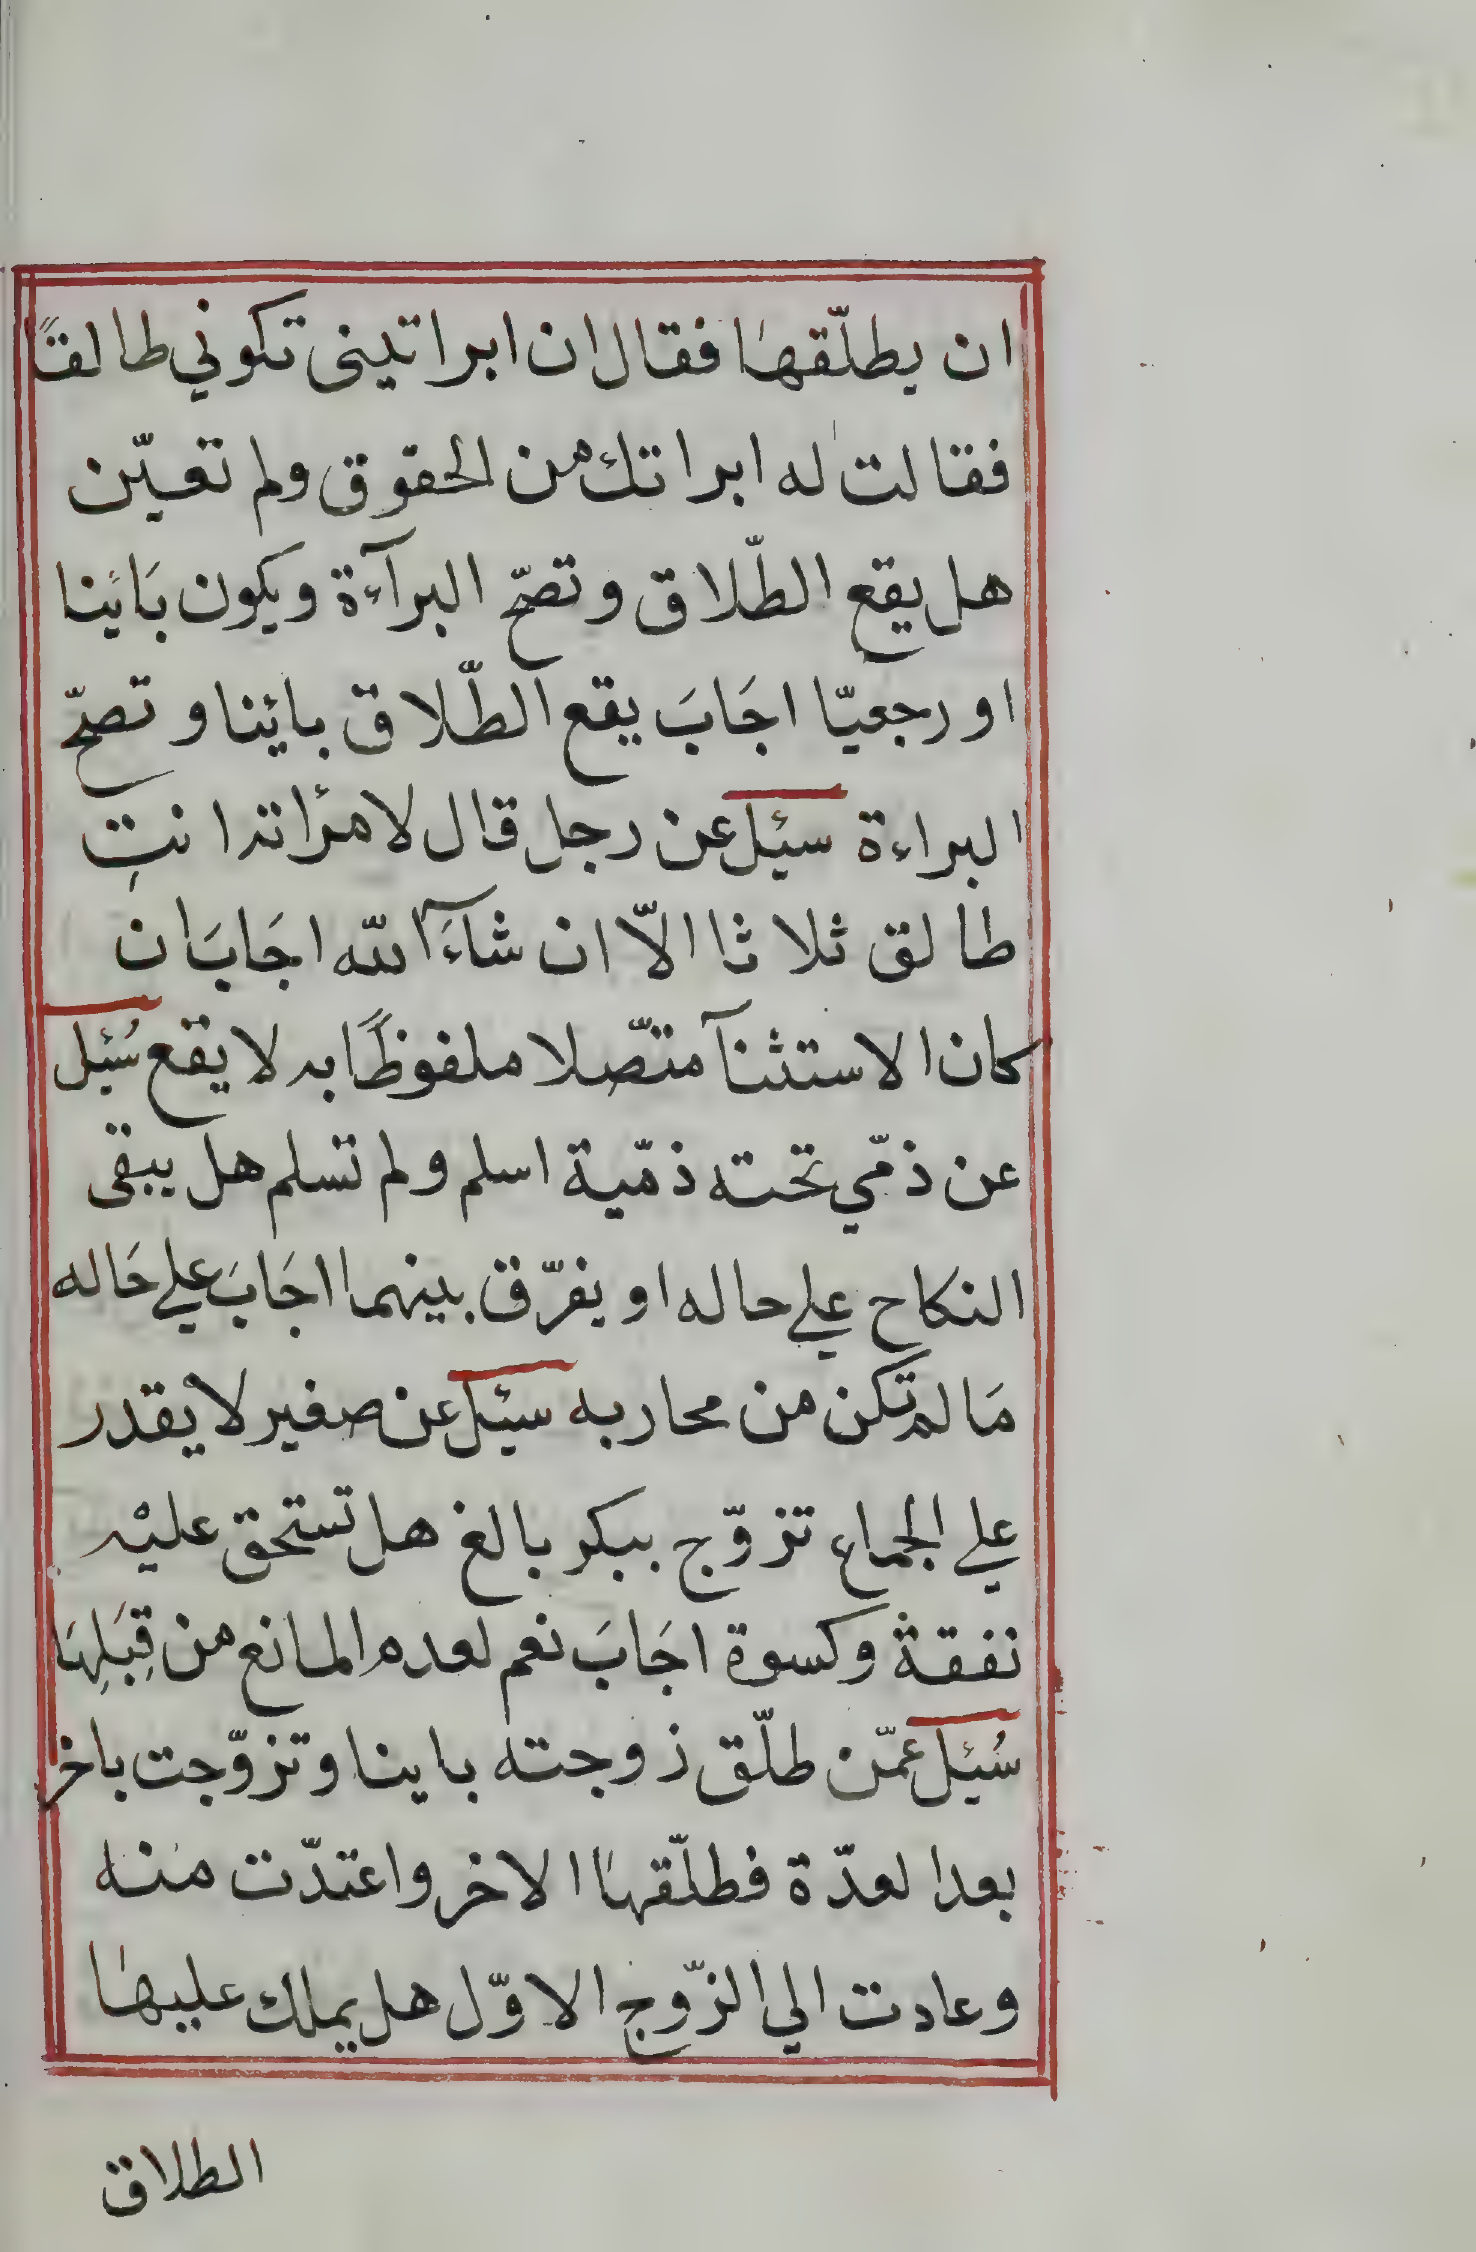 ان يطلّقها فقال ان ابراتينى تكوني طالقًا
فقالت له ابراتك من الحقوق ولم تعيّن
هل يقع الطّلاق وتصحّ البرآءة ويكون بَائينا
او رجعيّا اجَابَ يقع الطّلاق بائينا وتصحّ
البراءة سئيل عن رجل قال لامرأته انتِ
طالق ثلاثا الاّ ان شآءَ الله اجَابَ ان
كان الاستثنآ متّصلا ملفوظًا به لا يقع سُئيل
عن ذمّي تحته ذمّية اسلم ولم تسلم هل يبقى
النكاح علي حاله او يفرّق بينهما اجَابَ علي حَاله
مَا لم تكن من محاربه سئيل عن صغير لا يقدر
علي الجماع تزوّج ببكر بالغ هل تستحق عليْه
نفقة وكسوة اجَابَ نعم لعدم المانع من قِبَلِهَا
سُئيل عمّن طلّق زوجته باينا وتزوّجت باخر
بعد العدّة فطلّقها الاخر واعتدّت منه
وعادت الي الزّوج الاوّل هل يملك عليها
الطلاق